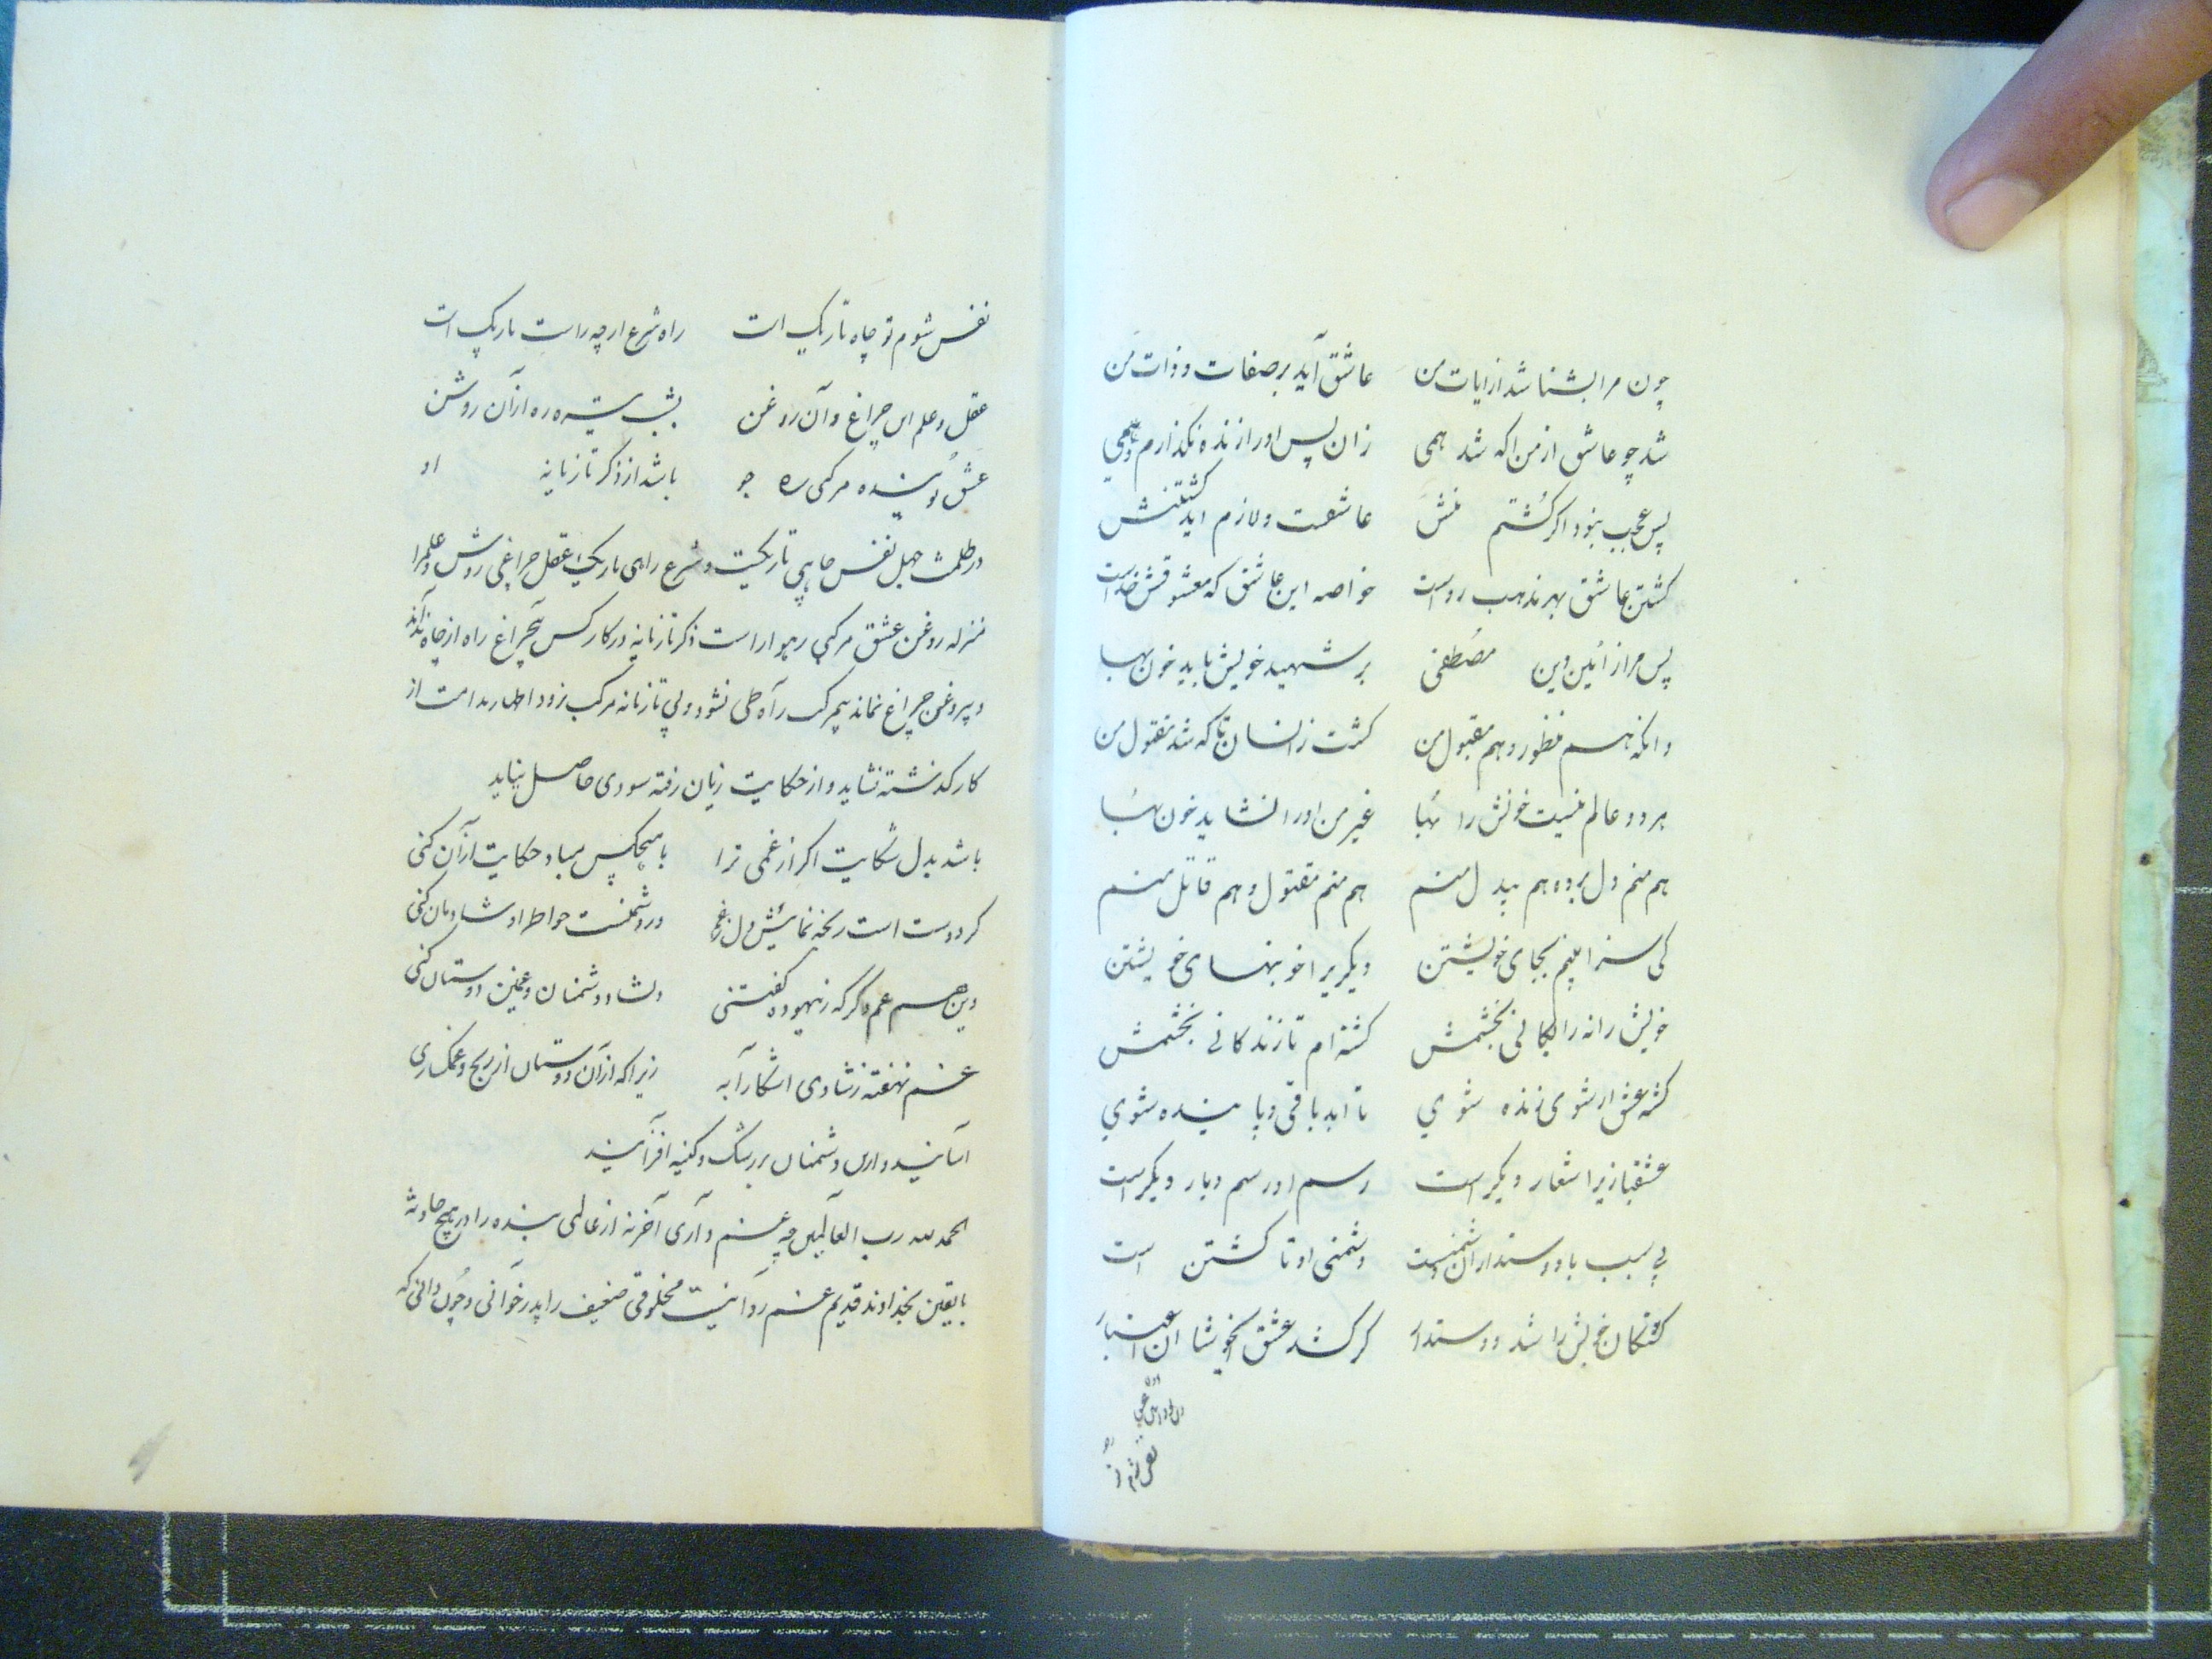 چون مرا بشناشد از ایات من عاشق آید بر صفات و ذات من
شد چو عاشق از من اکه شد همی زان پس او را زنده نکذارم دمی
پس عجب نبود اکر کشتم منش عاشقست و لازم اید کشتنش
کشتن عاشق بهر مذهب رواست خواصه این عاشق که معشوقش خداست
پس مرا از ائین دین مصطفی بر شهید خویش باید خون بها
وانکه هم منظور و هم مقبول من کشت زانسان تا که شد مقتول من
هر دو عالم نیست خونش را بها غیر من او را نشاید خون بها
هم منم دل برده هم بیدل منم هم منم مقتول و هم قاتل منم
کی سزا بینم بجای خویشتن دیکریرا خونبهای خویشتن
خویش را نه رایکانی بخشمش کشته ام تا زندکانی بخشمش
کشته عشق ار شوی زنده شوي تا ابد باقی و پاینده شوي
عشقبازیرا شعار دیکر است رسم او رسم و بار دیکر است
بی سبب با دوستداران دشمنست دشمنی او تا کشتن است
کشتکان خویش را شد دوستدار کر کشد عشق
نفس شوم تو چاه تاریک است راه شرع ارچه راست باریک است
عقل و علم این چراغ و آن روغن بشب تیره ره از آن روشن
عشق پوینده مرکبی ره جو باشد از ذکر تازیانه او
در ظلمت جهل نفس چاهی تاریکیست و شرع راهی باریک عقل چراغی روشن و علم را
منزله روغن عشق مرکبی رهوار است ذکر تازیانه در کار کس بیچراغ راه از چاه نداند
و بیروغن چراغ نماند بیمرکب راه طی نشود و بی تازیانه مرکب نرود اظهار ندامت از
کار کذشته نشاید و از حکایت زیان رفته سودی حاصل نیاید
باشد بدل شکایت اکر از غمی ترا با هیچکس مباد حکایت از آن کنی
کر دوست است رنجه نمائیش دل ز غم ور دشمنست خواطر او شادمان کنی
وین هم غم دکر که ز بیهوده کفتنی دلشاد دشمنان و غمین دوستان کنی
غم نهفته ز شادی اشکارا به زیرا که از آن دوستان از رنج و غمکساری
اسایند و این دشمنان بر رشک و کینه افزایند
الحمد لله رب العالمین چه غم داری آخر نه از عالمی بنده را در هیچ حادثه
با یقین بخداوند قدیم غم روا نیست مخلوقی ضعیف را پدر خوانی و چون دانی که